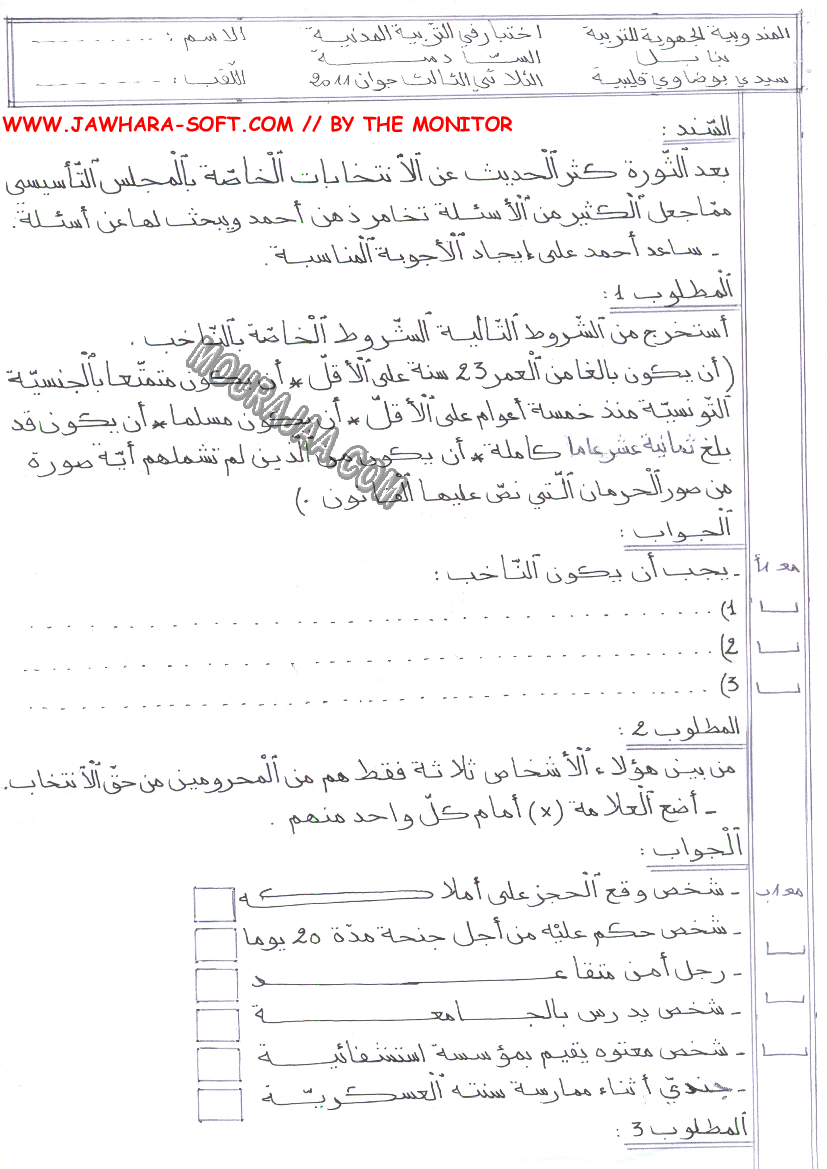 المندوبية الجهوية للتربية اختبار في التربية المدنية الاسم : ...........
بنابل السّادسة
سيدي بوضاوي قليبية الثلاثي الثالث جوان 2011 اللّقب : ...........
WWW.JAWHARA-SOFT.COM // BY THE MONITOR
السّند :
بعد الثّورة كثر الْحديث عن الْانتخابات الْخاصّة بالْمجلس التّأسيسي
ممّا جعل الْكثير من الْأسئلة تخامر ذهن أحمد ويبحث لها عن أسئلة.
- ساعد أحمد على إيجاد الْأجوبة الْمناسبة.
الْمطلوب 1 :
أستخرج من الشّروط التّالية الشّروط الْخاصّة بالنّاخب .
(أن يكون بالغا من الْعمر 23 سنة على الْأقلّ * أن يكون متمتّعا بالْجنسيّة
التّونسيّة منذ خمسة أعوام على الْأقلّ * أن يكون مسلما * أن يكون قد
بلغ ثمانية عشر عاما كاملة * أن يكون من الّذين لم تشملهم أيّة صورة
من صور الْحرمان الّتي نصّ عليها الْقانون .)
MOURAJAA.COM
الْجواب :
- يجب أن يكون النّاخب : مع 1أ
1) ...........
2) ...........
3) ...........
المطلوب 2 :
من بين هؤلاء الْأشخاص ثلاثة فقط هم من الْمحرومين من حقّ الْانتخاب.
- أضع الْعلامة (x) أمام كلّ واحد منهم .
الْجواب :
- شخص وقع الْحجز على أملاكه مع 1ب
- شخص حكم عليْه من أجل جنحة مدّة 20 يوما
- رجل أمن متقاعد
- شخص يدرس بالجامعة
- شخص معتوه يقيم بمؤسسة استشفائية
- جنديّ أثناء ممارسة سنته الْعسكريّة
الْمطلوب 3 :